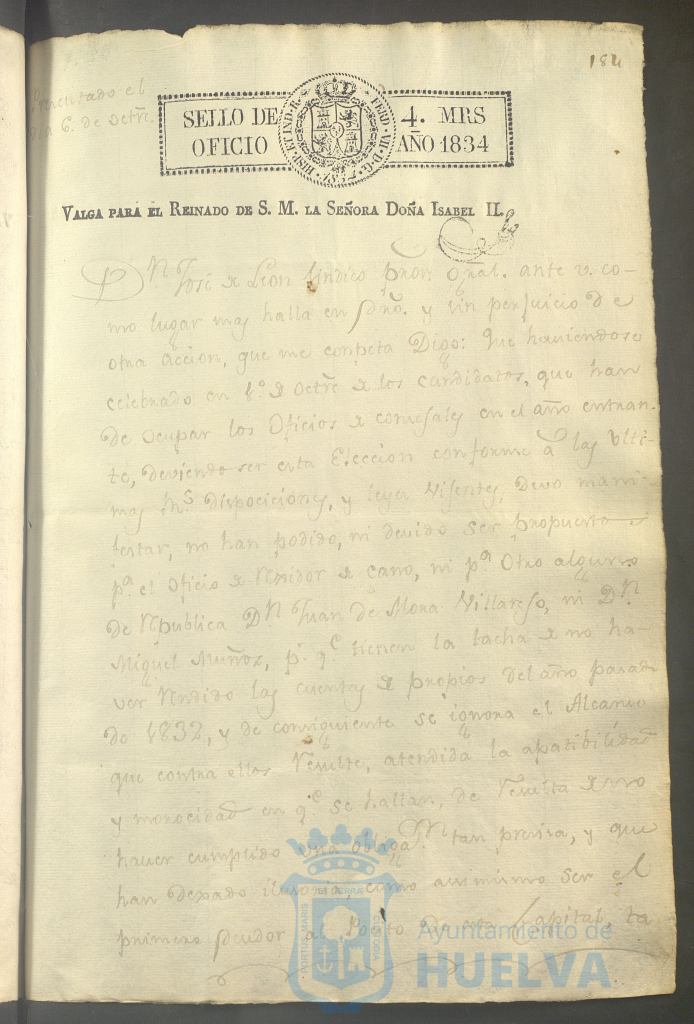 184
Presentado el
dia 6. de Octre.
SELLO DE
OFICIO
4. MRS
AÑO 1834
FERD. VII. D. G. HISP. ET IND. R.
VALGA PARA EL REINADO DE S. M. LA SEÑORA DOÑA ISABEL II.
Dn. José de Leon Sindico pror. gral. ante v. co-
mo lugar mas halla en dro. y sin perjuicio de
otra accion, que me conpeta Digo: Que haviendose
celebrado en 1º. de Octre de los candidatos, que han
de ocupar los Oficios de consejales en el año entran-
te, deviendo ser esta Eleccion conforme à las ulti-
mas Rs. disposiciones, y leyes visentes, Devo mani-
festar, no han podido, ni devido ser propuestos
pa. el oficio de Rexidor de cano, ni pa. Otro alguno
de Republica Dn. Juan de Mora Villarejo, ni Dn.
Miguel Muñoz, pr. qe. tienen la tacha de no ha-
ver rendido las cuentas de propios del año pasado
de 1832, y de consiguiente se ignora el Alcance
que contra ellos resulte, atendida la apatibilidad
y morocidad en qe. se hallan, de resulta de no
haver cumplido una obligaon. tan precisa, y que
han dexado ilusoria, como asimismo ser el
primero deudor al Posito de esta Capital, ta
PORTUS MARIS ET TERRAE CUSTODIA
Ayuntamiento de
HUELVA